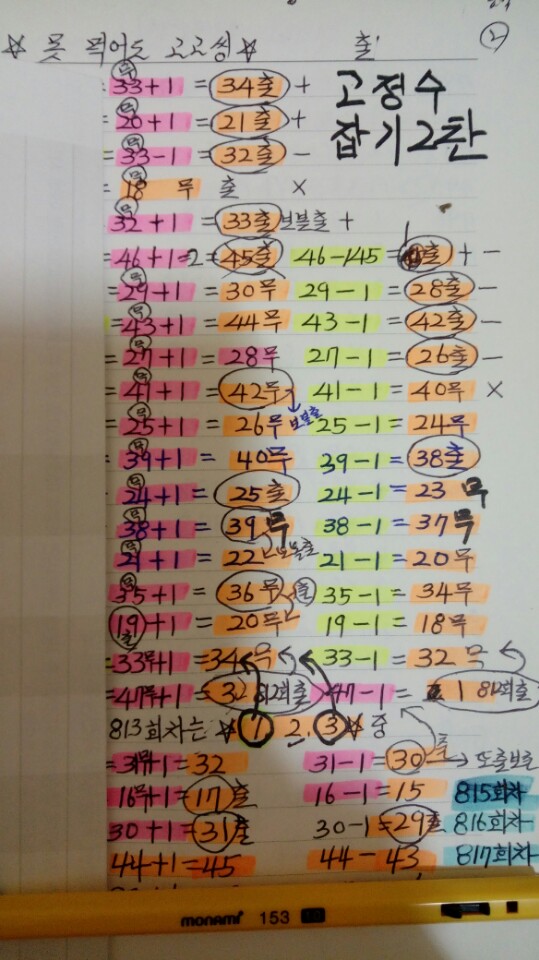 ☆ 못 찍어도 고고씽☆ 출 ②
= 33+1 = 34출 +
고정수
= 20+1 = 21출 +
잡기2탄
= 33-1 = 32출 -
= 18 무 출 ×
32+1 = 33출 보볼출 +
= 46+1=2= 45출 46-1/45= 출 + -
= 29+1 = 30무 29-1 = 28출 -
= 43+1 = 44무 43-1 = 42출 -
= 27+1 = 28무 27-1 = 26출 -
= 41+1 = 42무 41-1 = 40무 ×
= 25+1 = 26무 보볼출 25-1 = 24무
= 39+1 = 40무 39-1 = 38출
= 24+1 = 25출 24-1 = 23 무
= 38+1 = 39무 38-1 = 37무
= 21+1 = 22 21-1 = 20무
= 35+1 = 36무 출 35-1 = 34무
19출+1 = 20무 19-1 = 18무
= 33무+1 = 34무 33-1 = 32무
= 47무+1 = 32 812회출 47-1 = 1 812회출
813회차는 ☆1, 2, 3☆ 중
+1 = 32 31-1 = 30 출 → 또출보출
16무+1 = 17출 16-1 = 15 815회차
30+1 = 31출 30-1 = 29출 816회차
44+1 = 45 44- 43 817회차
monami 153 1.0